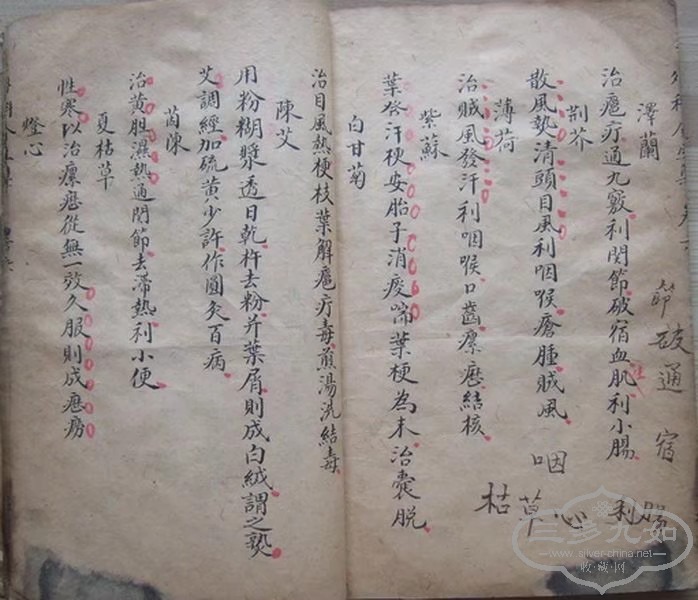 澤蘭
治瘟疔通九竅利関節破宿血肌利小腸
荆芥
散風𤍠清頭目風利咽喉瘡腫賊風
薄荷
治賊風發汗利咽喉口齒瘰癧結核
紫蘇
葉發汗梗安胎子消痰喘葉梗為末治囊脱
白甘菊
節破通宿
咽
腸利心草枯
治目風熱梗枝葉解瘟疔毒煎湯洗結毒
陳艾
用粉糊漿透日乾杵去粉并葉屑則成白絨謂之熟
艾調經加硫黄少許作圓灸百病
茵陳
治黄胆濕熱通関節去滞熱利小便
夏枯草
性寒以治瘰癧從無一效久服則成癧癆
燈心
三多九如
www.silver-china.net
收·藏·网